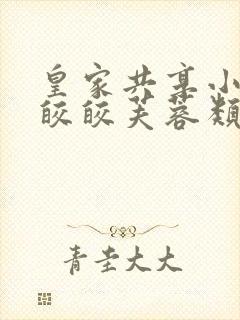 皇家共享小
皎皎芙蓉颜
青圭大大